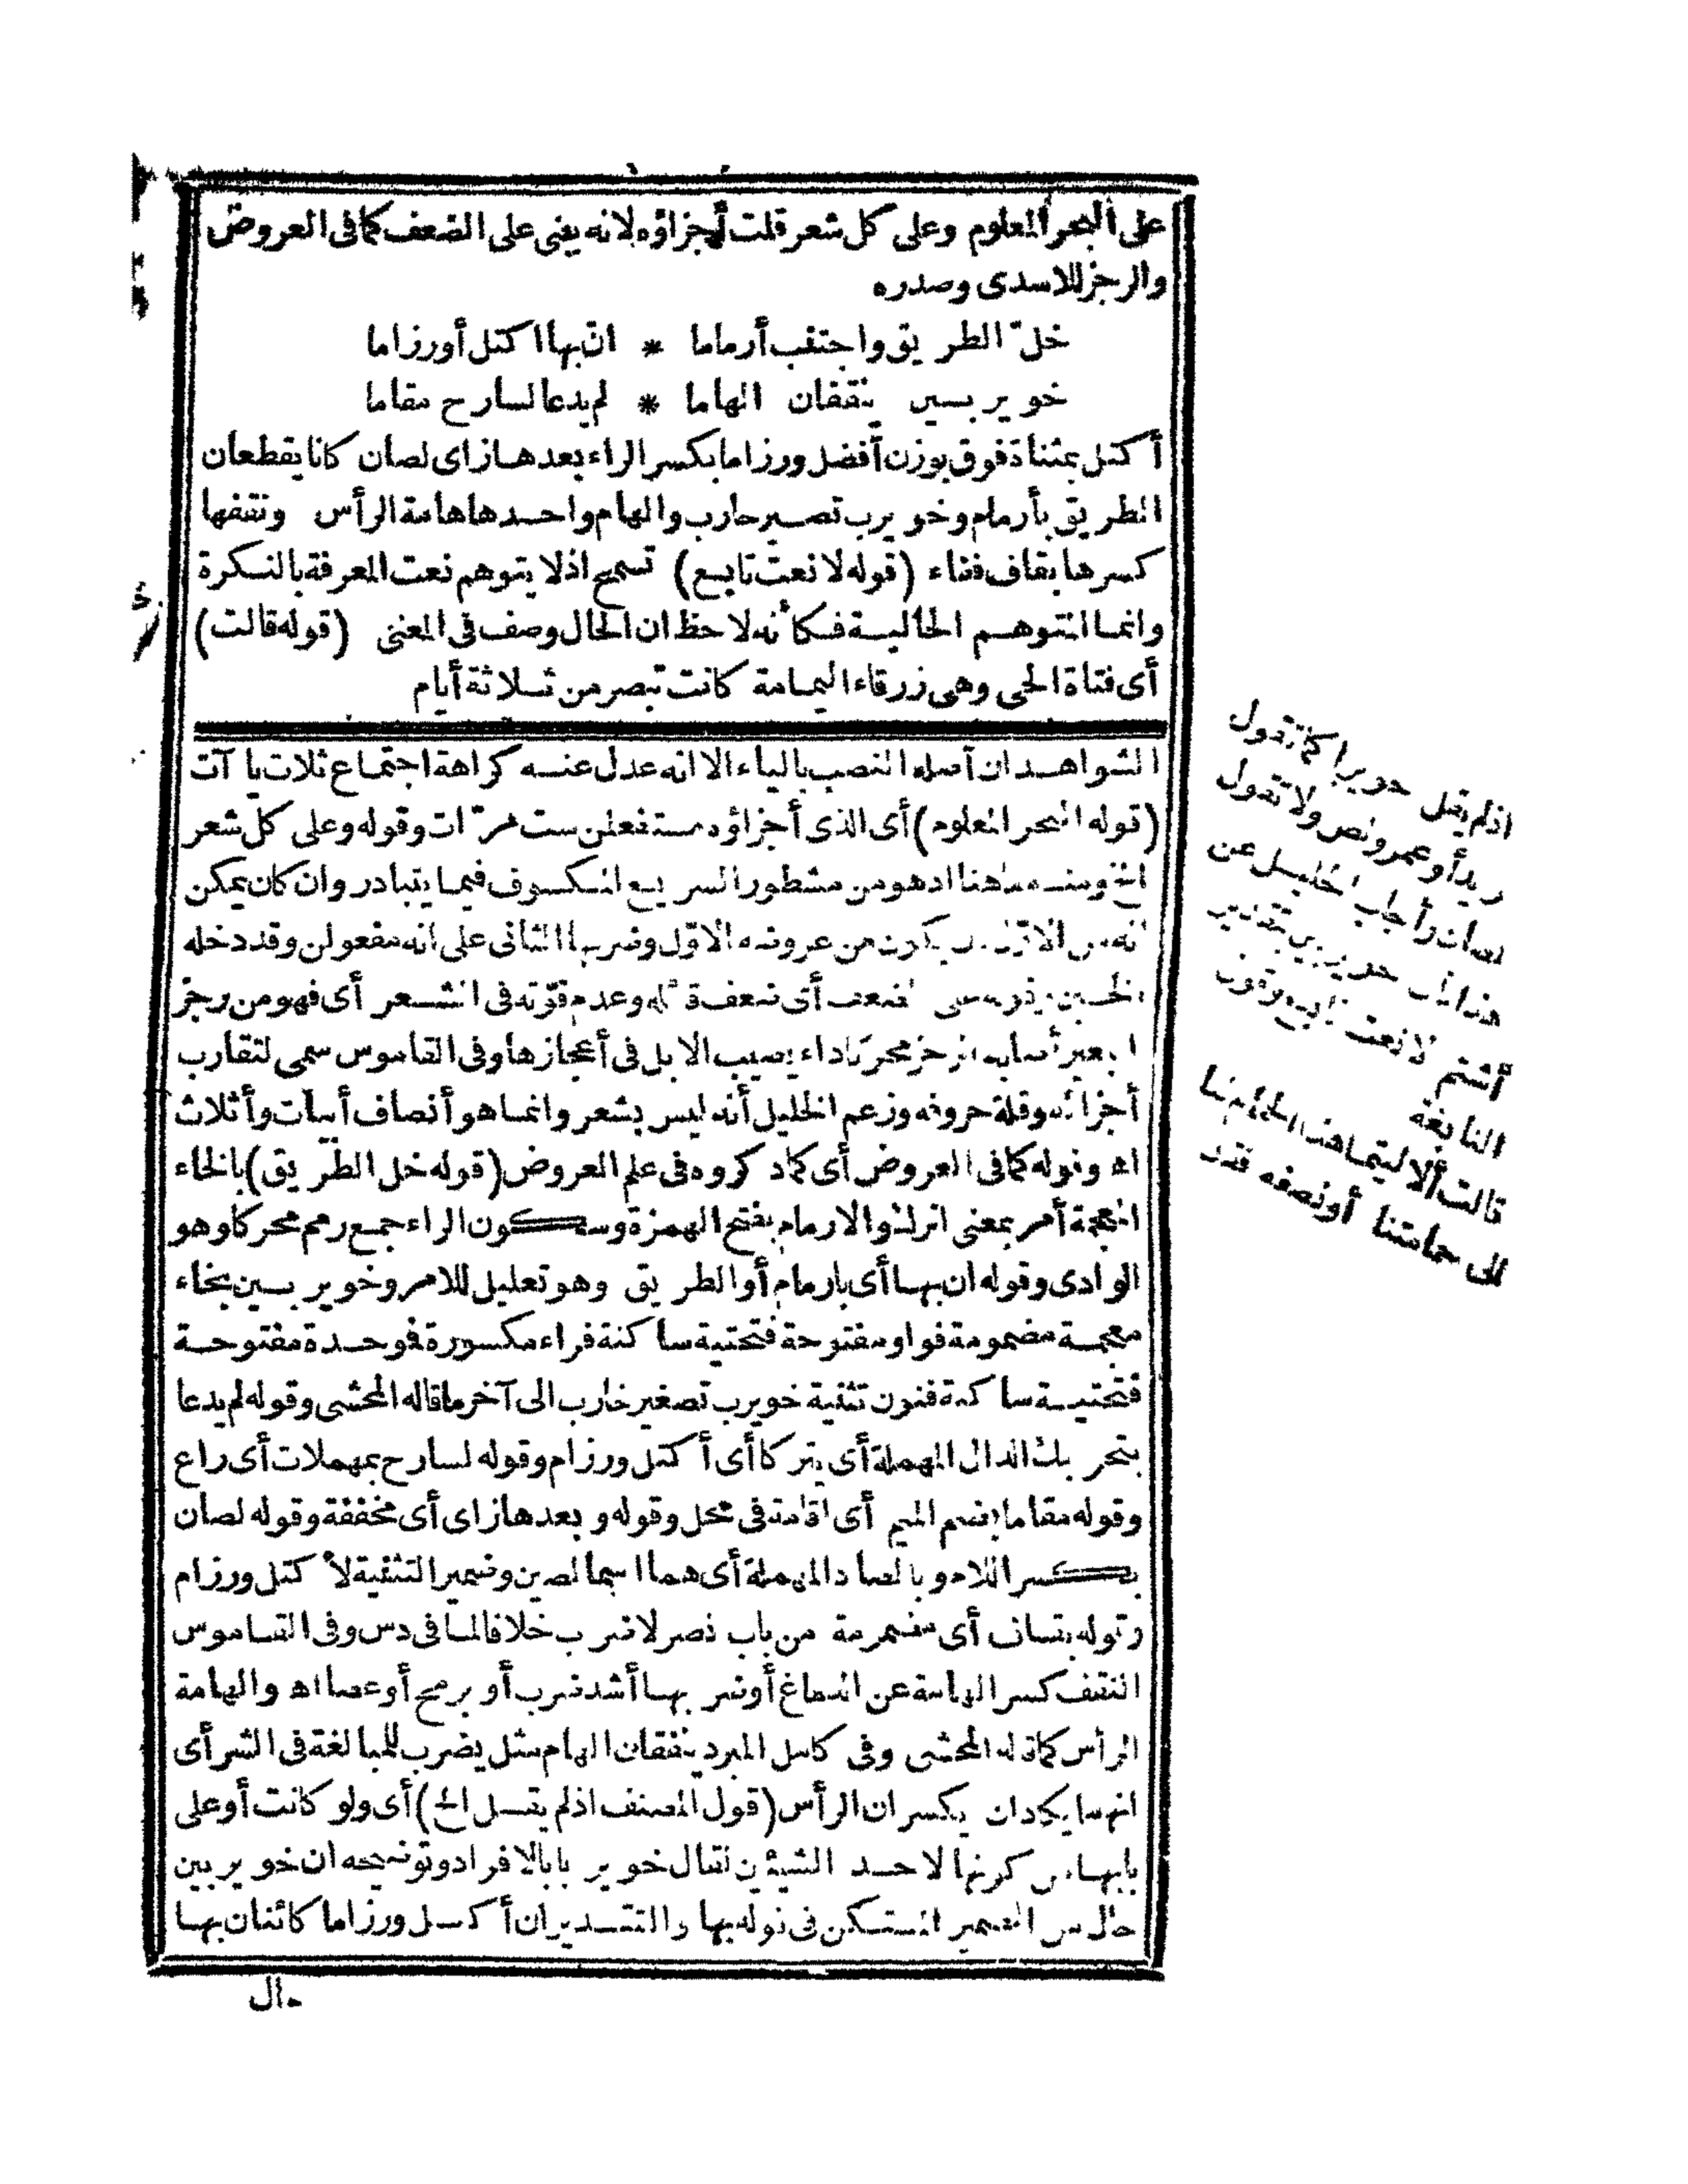 على البحر المعلوم وعلى كل شعر قلت أجزاؤه لانه يغنى على الضعف كما فى العروض
والرجز للاسدى وصدره
خل الطريق واجتنب أرماما * ان بها اكتل أو رزاما
خويربين ينقفان الهاما * لم يدعا لسارح مقاما
أكتل بمثناة فوق بوزن أفضل ورزاما بكسر الراء بعدها زاى لصان كانا يقطعان
الطريق بأرمام وخويرب تصغير خارب والهام واحدها هامة الرأس ونقفها
كسرها بقاف ففاء (قوله لا نعت تابع) تسمح اذ لا يتوهم نعت المعرفة بالنكرة
وانما المتوهم الحالية فكأنه لاحظ ان الحال وصف فى المعنى (قوله قالت)
أى فتاة الحى وهى زرقاء اليمامة كانت تبصر من ثلاثة أيام
الشواهد ان أصله النصب بالياء الا انه عدل عنه كراهة اجتماع ثلاث يا آت
(قوله البحر المعلوم) أى الذى أجزاؤه مستفعلن ست مرات وقوله وعلى كل شعر
الخ ومنه ما هنا اذ هو من مشطور السريع المكسوف فيما يتبادر وان كان يمكن
انه من الاول يكون من عروضه الاول وضربها الثانى على انه مفعولن وقد دخله
الخبن الضعف أى ضعف قوته فى الشعر أى فهو من رجز
البعير أصابه الرجز محركا داء يصيب الابل فى أعجازها وفى القاموس سمى لتقارب
أجزائه وقلة حروفه وزعم الخليل أنه ليس بشعر وانما هو أنصاف أبيات وأثلاث
اه وقوله كما فى العروض أى كما ذكروه فى علم العروض (قوله خل الطريق) بالخاء
المعجمة أمر بمعنى اترك والارمام بفتح الهمزة وسكون الراء جمع رمم محركا وهو
الوادى وقوله ان بها أى بارمام أو الطريق وهو تعليل للامر وخويربين بخاء
معجمة مضمومة فواو مفتوحة فتحتية ساكنة فراء مكسورة فموحدة مفتوحة
فتحتية ساكنة فنون تثنية خويرب تصغير خارب الى آخر ما قاله المحشى وقوله لم يدعا
بتحريك الدال المهملة أى يتركا أى أكتل ورزام وقوله لسارح بمهملات أى راع
وقوله مقاما بضم الميم أى اقامة فى محل وقوله وبعدها زاى أى مخففة وقوله لصان
بكسر اللام وبالصاد المهملة أى هما اسما لصين وضمير التثنية لأكتل ورزام
وقوله بقاف أى مضمومة من باب نصر لا ضرب خلافا لما فى دس وفى القاموس
النقف كسر الهامة عن الدماغ أو ضربها أشد ضرب أو برمح أو عصا اه والهامة
الرأس كما قاله المحشى وفى كامل المبرد ينقفان الهام مثل يضرب للمبالغة فى الشر أى
انهما يكادان يكسران الرأس (قول المصنف اذ لم يقل الخ) أى ولو كانت أو على
بابها من كونها لاحد الشيئين لقال خويربا بالافراد وتوضيحه ان خويربين
حال من الضمير المستكن فى قوله بها والتقدير ان أكتل ورزاما كائنان بها
حال
اذ لم يقل خويربا كما تقول
زيد أو عمرو لص ولا تقول
لصان وأجاب الخليل عن
هذا بأن خويربين بتقدير
أشتم لا نعت تابع وقول
النابغة
قالت ألا ليتما هذا الحمام لنا
الى حمامتنا أو نصفه فقد